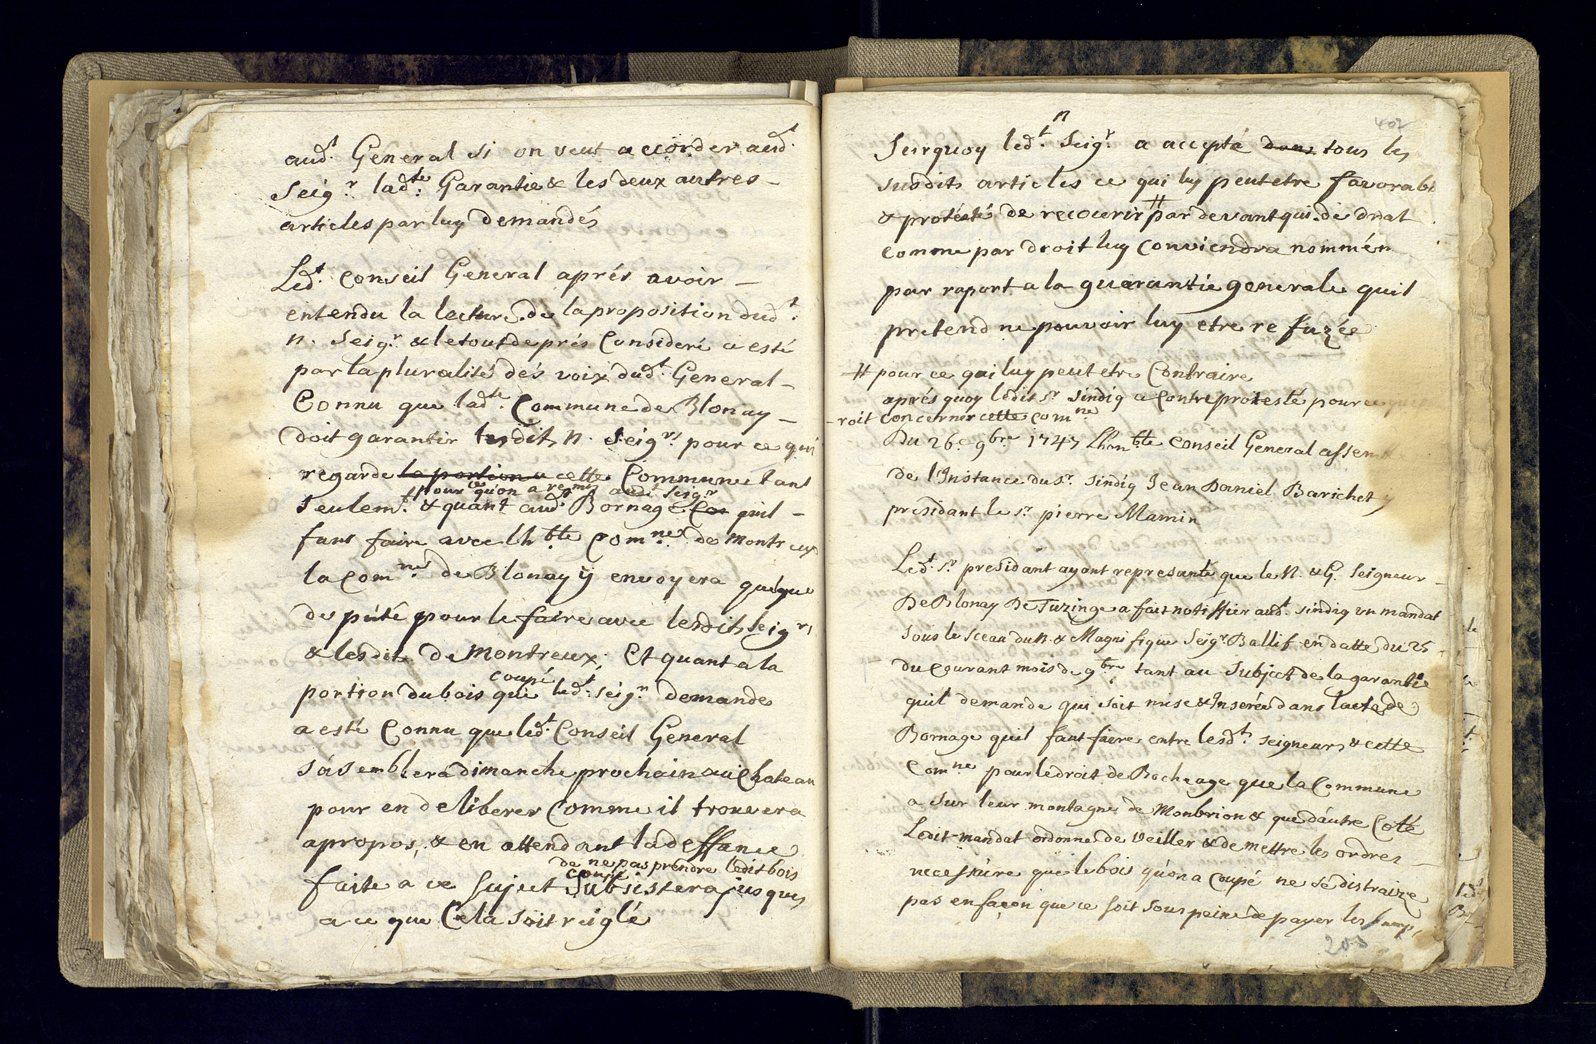 aud.t General si on veut accorder aud.t
Seig.r lad.te Garantie & les deux autres
articles par luy demandés
Led.t Conseil General aprés avoir
entendu la lecture de la proposition dud.t
N. Seig.r & le tout de prés Consideré a esté
par la pluralité dés voix dud.t General
Connu que lad.te Commune de Blonay
doit garantir lesdits N. Seig.rs pour ce qui
regarde la portion a cette Commune tant
pour ce qu'on a remis aud. Seig.r
Seulem.t & quant aud.t Bornage qu'il
faut faire avec Lh.ble Com.ne de Montreux
la Com.ne de Blonay ÿ envoyera quéque
députê pour le faire avec lesdits Seig.rs
& lesdits de Montreux, Et quant a la
coupé
portion du bois que led.t Seig.r demande
a esté Connu que led.t Conseil General
sásemblera dimanche prochain au Chateau
pour en deliberer Comme il trouvera
apropos, & en attendant la deffance
de ne pas prendre ledit bois
coupé
faite a ce sujet Subsistera jusques
a ce que Cela soit reiglé
402
n
Surquoy led.t Seig.r a accepté dans tous les
susdits articles ce qui luy peut etre favorabl
& protésté de recourir # par devant qui de droit
comme par droit luy conviendra nommén
par raport a la guarantie generale quil
pretend ne pouvoir luy etre refuzée
# pour ce qui luy peut etre Contraire
aprés quoy ledit Sr. sindiq a Contreprotesté pour ce
roit concerner cette Com.ne
Du 26.e 9bre 1747 Lhon.ble Conseil General assem
de l'Instance du Sr. Sindiq Jean Daniel Barichet
présidant le Sr. pierre Mamin
Led.t Sr. présidant ayant représanté que les N. & G. Seigneur
De Blonay De Tuzinge a fait notiffier aud.t sindiq un mandat
sous le sceau du N. & Magnifique Seig.r Ballif en datte du 25
du courant mois de 9bre tant au Subject de la garantie
quil demande qui soit mise & Insérée dans l'acte de
Bornage quil faut faire entre lesd.ts seigneurs & cette
Com.ne pour le droit de Bocheage que la Commune
a sur leur montagne de Monbrion & que d'autre Coté
Ledit mandat ordonne de veiller & de mettre les ordres
necessaire que le bois qu'on a coupé ne se distraize
pas en façon que ce soit sous peine de payer les
203